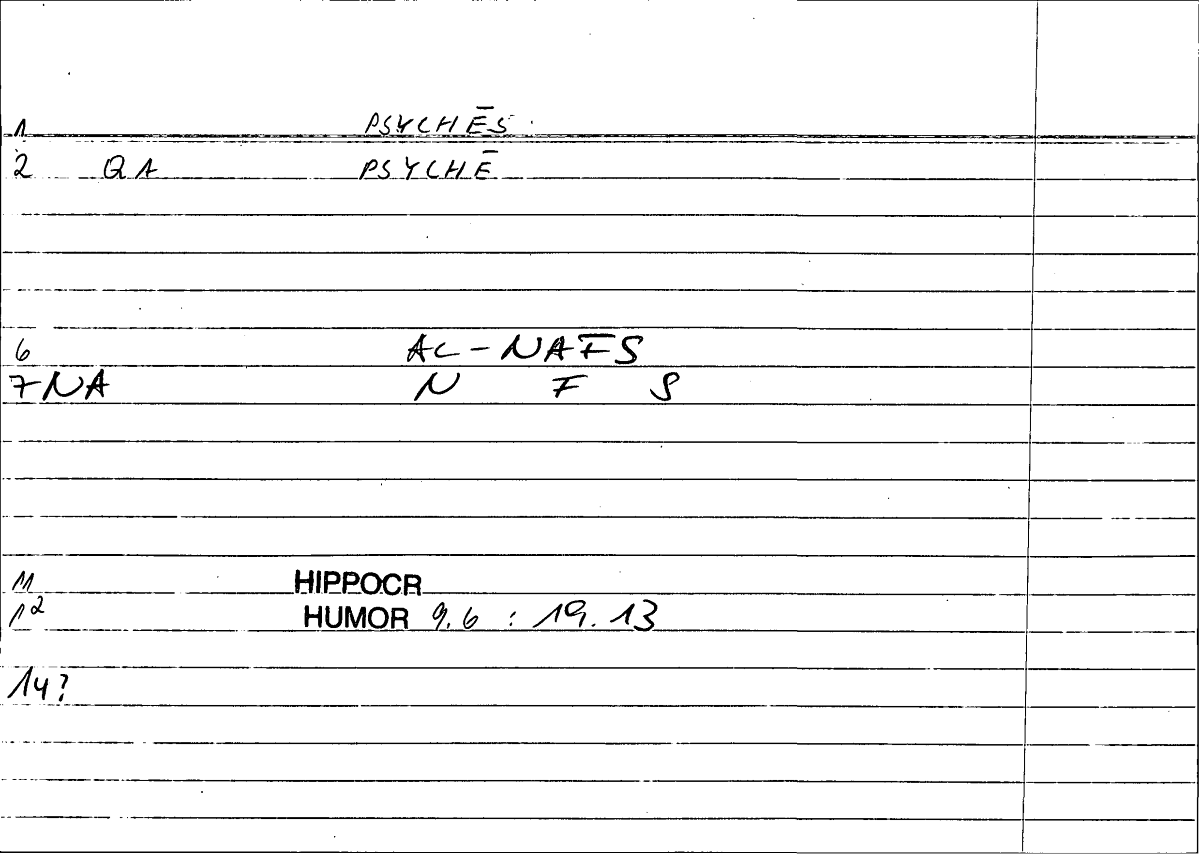 1 PSYCHĒS
2 QA PSYCHĒ
6 AL-NAFS
7 NA N F S
11 HIPPOCR
12 HUMOR 9.6 : 19.13
14?